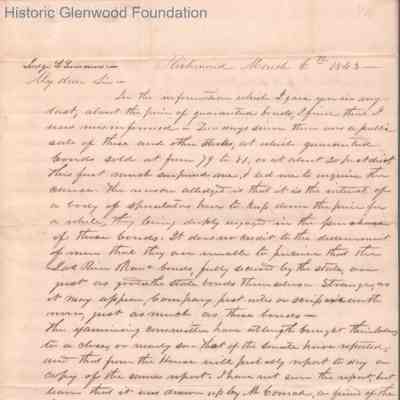 Historic Glenwood Foundation
Richmond March 6th 1843 —
Judge
My dear Sir —
In the information which I gave you in my
last, about the price of guaranteed bonds, I find that I
was misinformed — Two days since there was a public
sale of these and other stocks, at which guaranteed
bonds sold at from 79 to 81, or at about 20 pr ct disct
This fact much surprised me, & led me to inquire the
cause. The reason alledged is that it is the interest of
a body of speculators here to keep down the price for
a while, they being deeply engaged in the purchase
of these bonds. It does no credit to the discernment
of men that they are unable to perceive that the
Jas River bonds, fully secured by the state, are
just as good as state bonds themselves. Strange, as
it may appear, Company post notes or scrip is worth
more, just as much as, these bonds —
The examining committee have at length brought their labors
to a close, or nearly so. That of the Senate have reported,
and that from the House will probably report to day a
copy of the same report. I have not seen the report, but
learn that it was drawn up by Mr Conrad, a friend of the